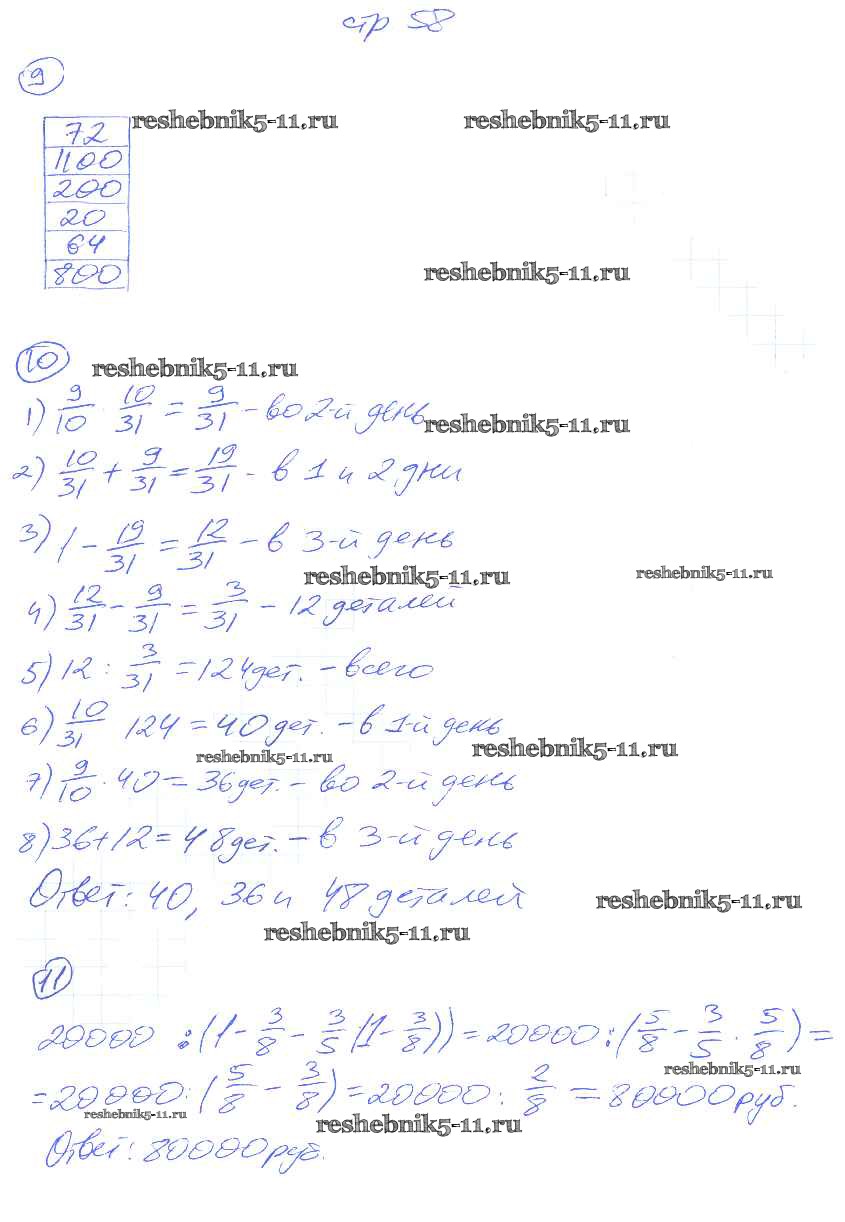 стр 58
9
reshebnik5-11.ru reshebnik5-11.ru
72
1100
200
20
64
800
reshebnik5-11.ru
10 reshebnik5-11.ru
1) 9/10 · 10/31 = 9/31 - во 2-й день
reshebnik5-11.ru
2) 10/31 + 9/31 = 19/31 - в 1 и 2 дни
3) 1 - 19/31 = 12/31 - в 3-й день
reshebnik5-11.ru reshebnik5-11.ru
4) 12/31 - 9/31 = 3/31 - 12 деталей
5) 12 : 3/31 = 124 дет. - всего
6) 10/31 124 = 40 дет. - в 1-й день
reshebnik5-11.ru reshebnik5-11.ru
7) 9/10 · 40 = 36 дет. - во 2-й день
8) 36 + 12 = 48 дет. - в 3-й день
Ответ: 40, 36 и 48 деталей reshebnik5-11.ru
reshebnik5-11.ru
11
20000 : (1 - 3/8 - 3/5 (1 - 3/8)) = 20000 : (5/8 - 3/5 · 5/8) =
reshebnik5-11.ru
= 20000 : (5/8 - 3/8) = 20000 : 2/8 = 80000 руб.
reshebnik5-11.ru reshebnik5-11.ru
Ответ: 80000 руб.